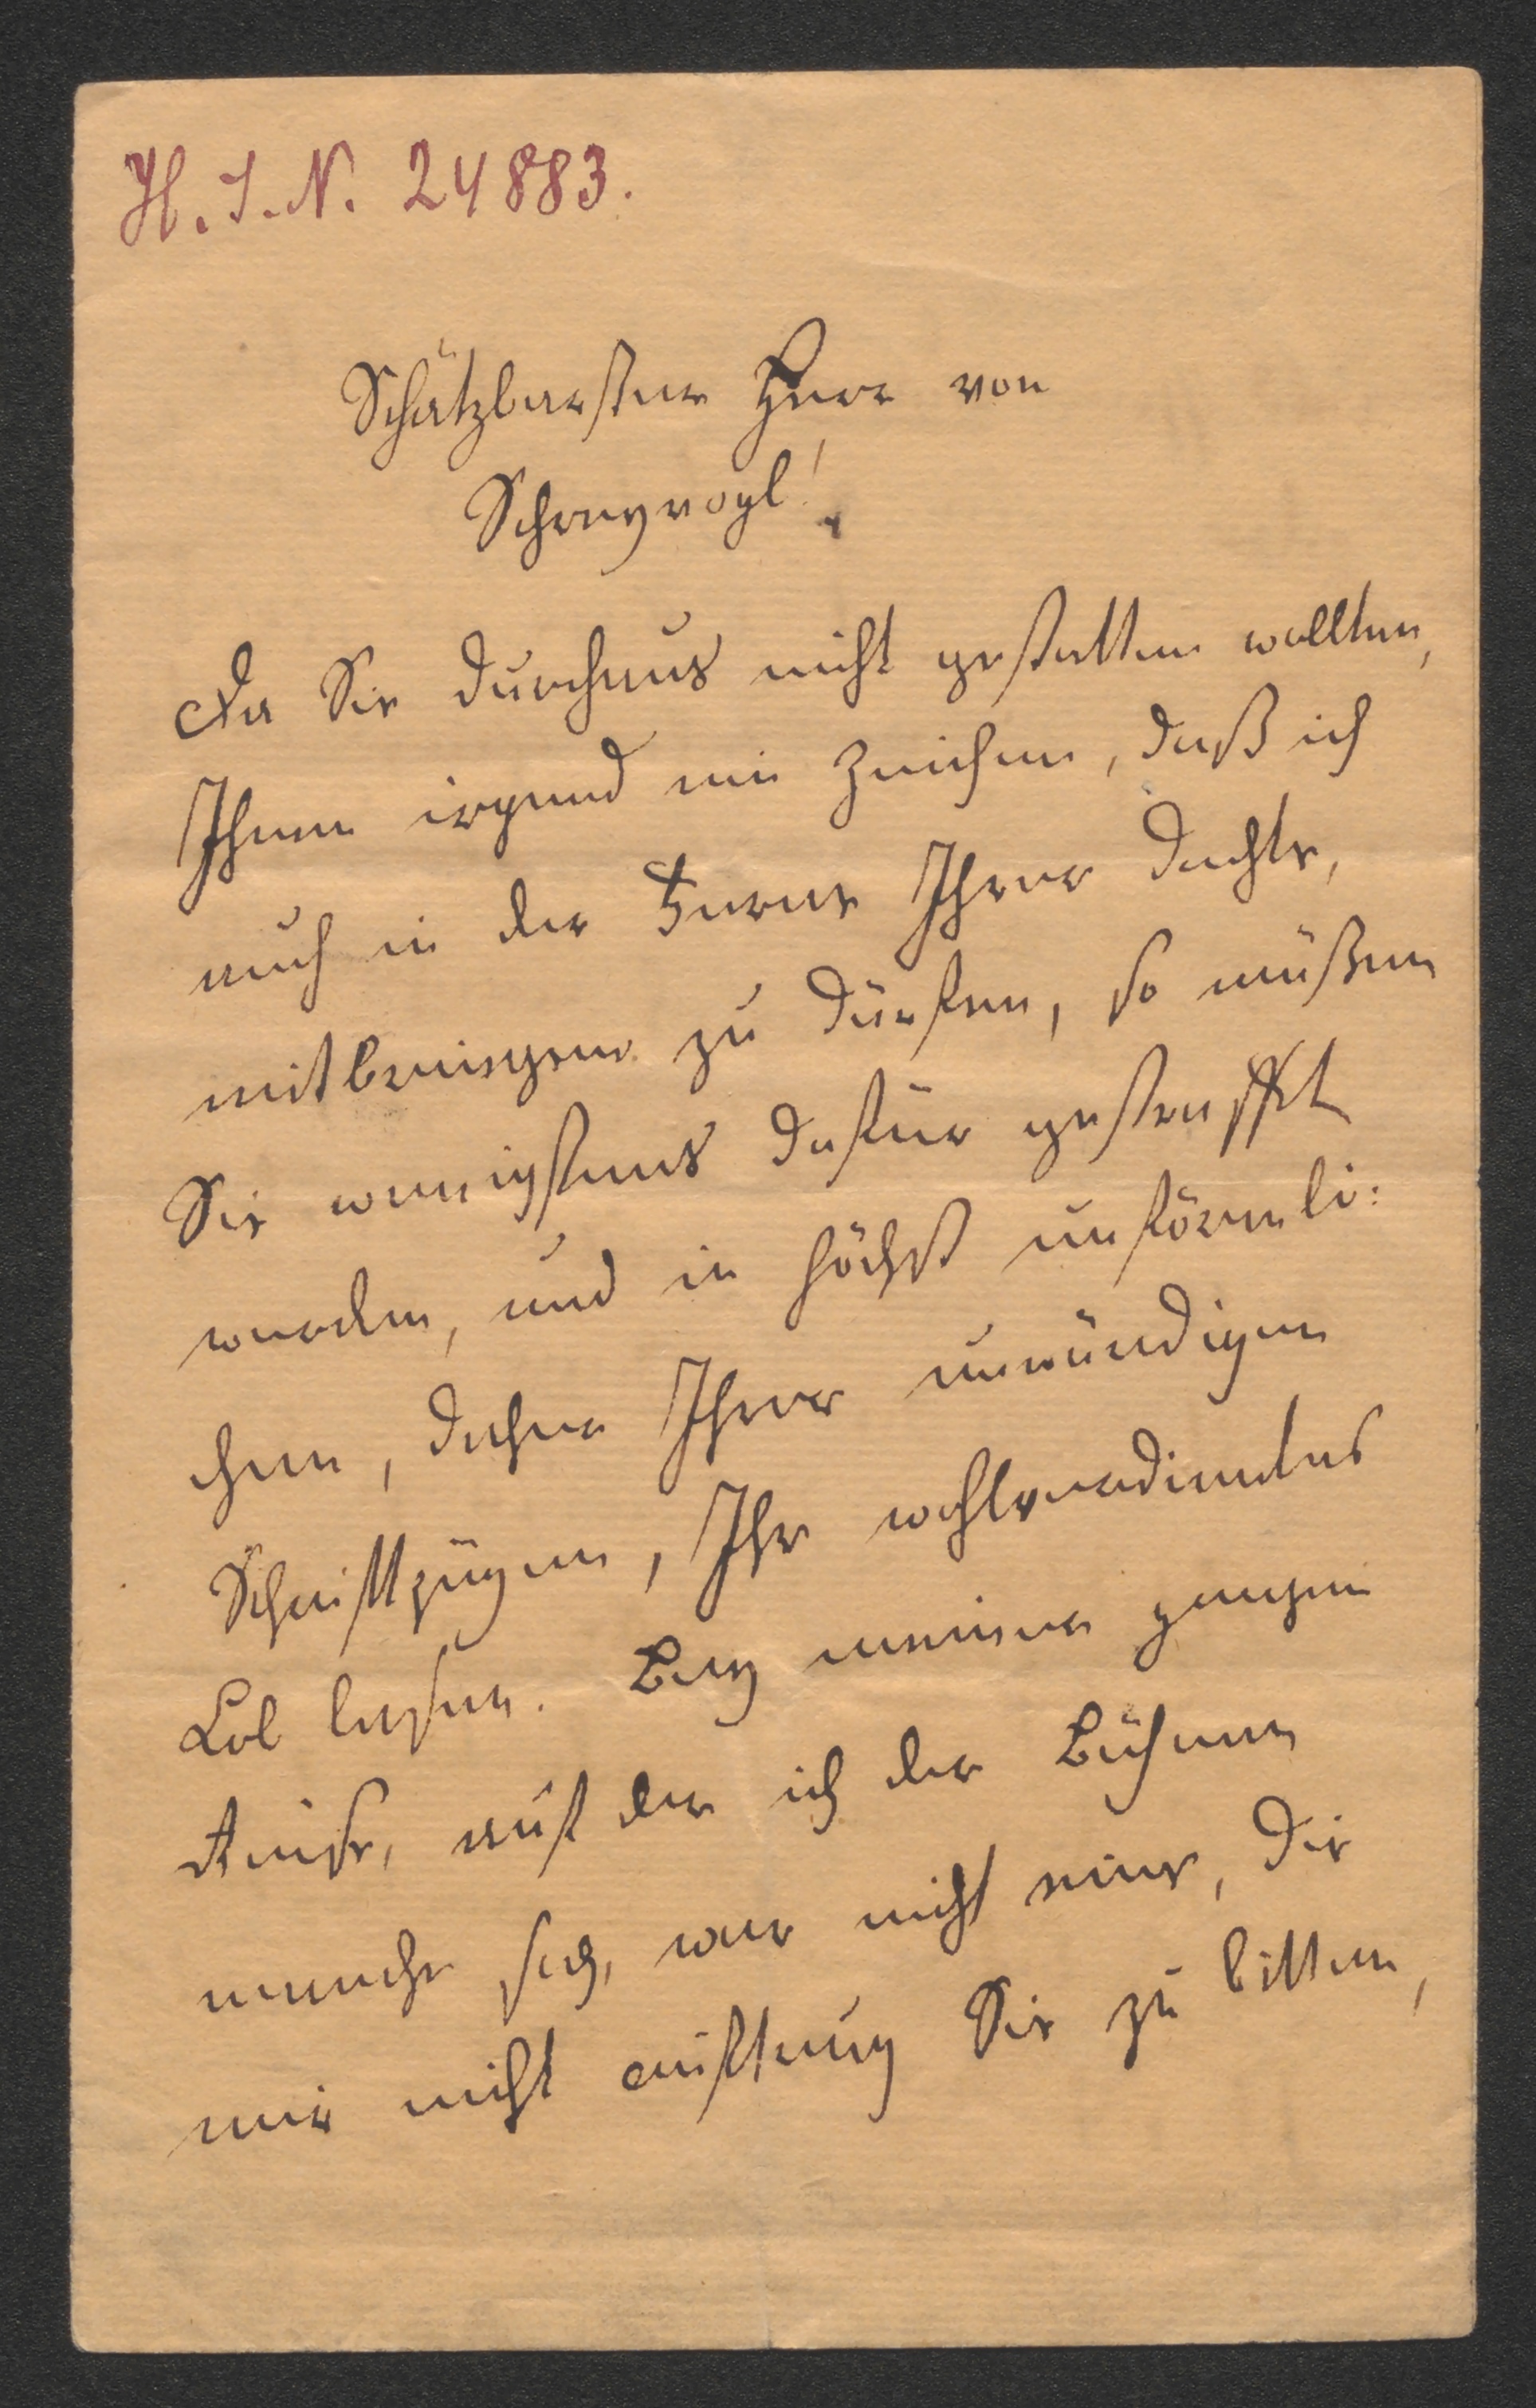 H. I. N. 24883.
Schätzbarster Herr von
Schreyvogl!
Da Sie durchaus nicht gestatten wollten,
Ihnen irgend ein Zeichen, daß ich
auch in der Ferne Ihrer dachte,
mitbringen zu dürfen, so müßen
Sie wenigstens dafür gestrafft
werden, und in höchst unförmli:
chen, daher Ihrer unwürdigen
Schriftzügen, Ihr wohlverdientes
Lob lesen. Bey meiner ganzen
Reise, auf der ich der Bühnen
manche sah, war nicht eine, die
mir nicht auftrug Sie zu bitten,